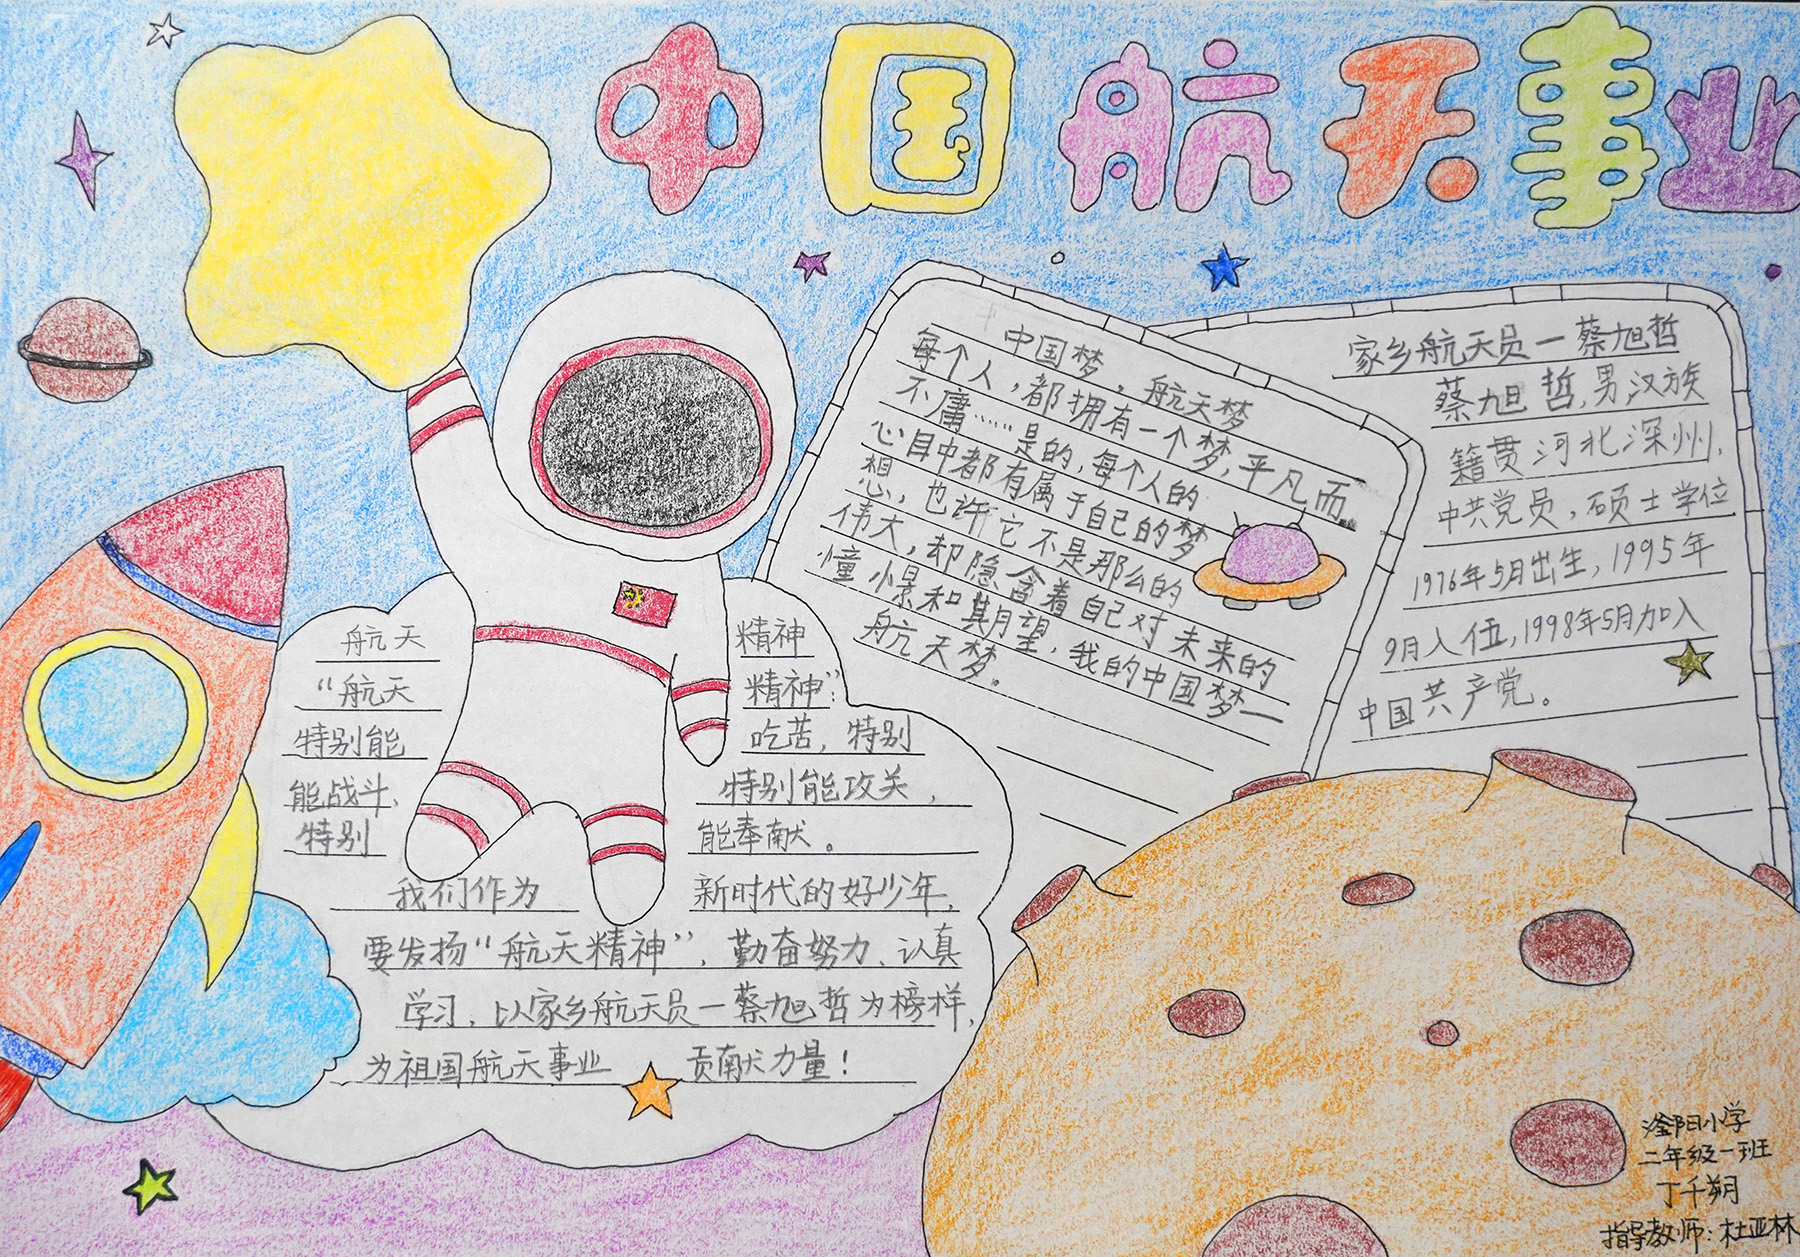 中国航天事业
中国梦，航天梦
每个人，都拥有一个梦，平凡而
不庸……是的，每个人的
心目中都有属于自己的梦
想，也许它不是那么的
伟大，却隐含着自己对未来的
憧憬和期望，我的中国梦一
航天梦。
家乡航天员一蔡旭哲
蔡旭哲，男，汉族
籍贯河北深州，
中共党员，硕士学位
1976年5月出生，1995年
9月入伍，1998年5月加入
中国共产党。
航天 精神
“航天 精神”：
特别能 吃苦，特别
能战斗、 特别能攻关，
特别 能奉献。
我们作为 新时代的好少年，
要发扬“航天精神”，勤奋努力、认真
学习，以家乡航天员一蔡旭哲为榜样，
为祖国航天事业 贡献力量！
滏阳小学
二年级一班
丁千朔
指导教师：杜亚林